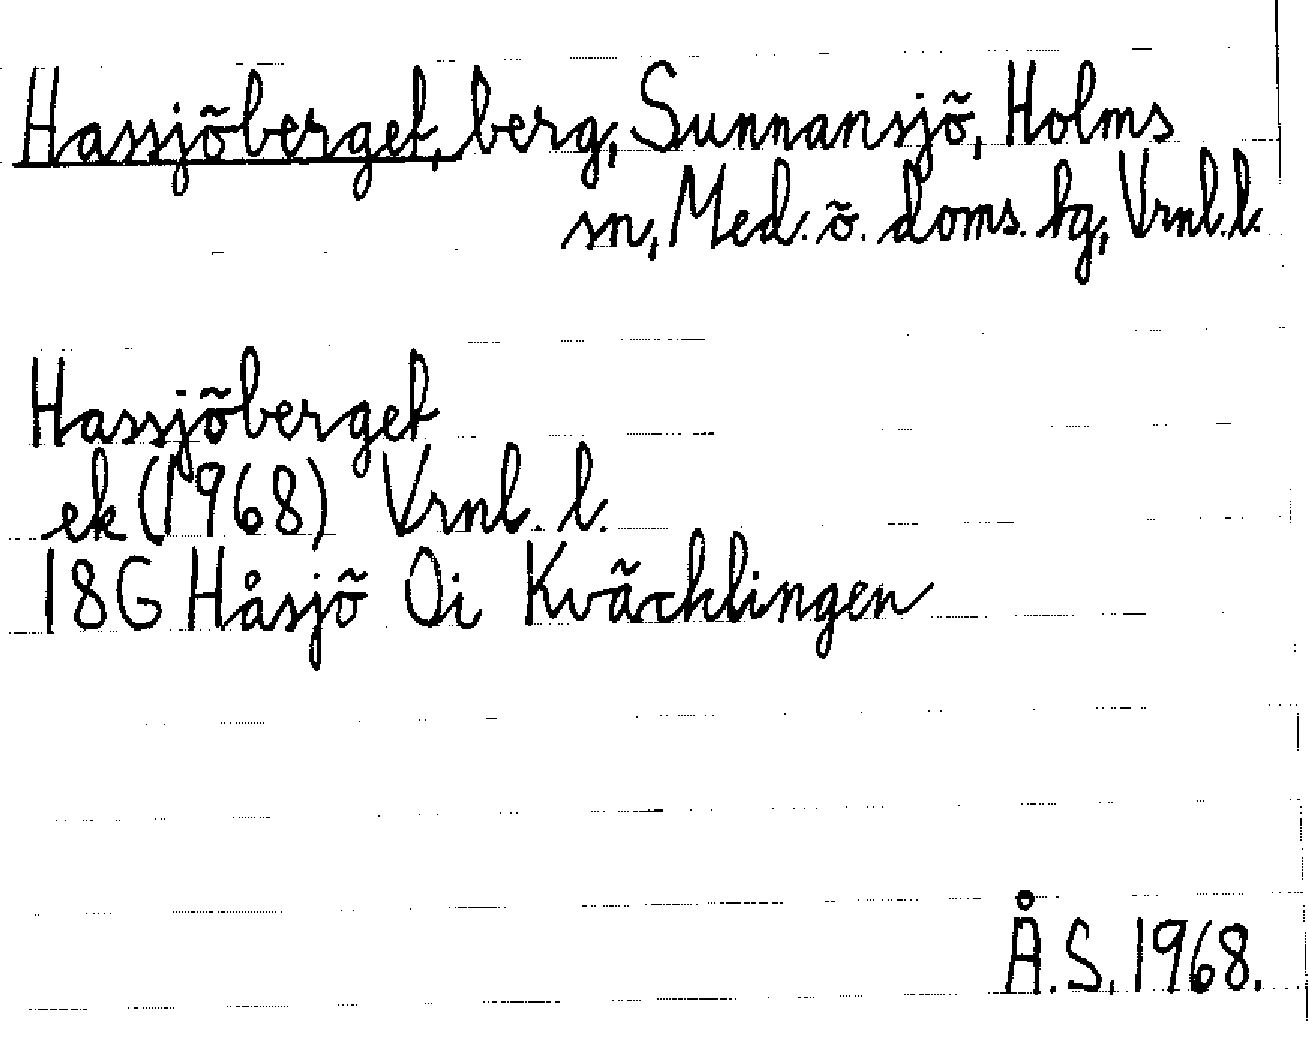 Hassjöberget, berg, Sunnansjö, Holms
sn, Med. ö. doms. hg, Vrnl.l.
Hassjöberget
ek (1968) Vrnl. l.
18G Håsjö 0i Kväcklingen
Å.S. 1968.